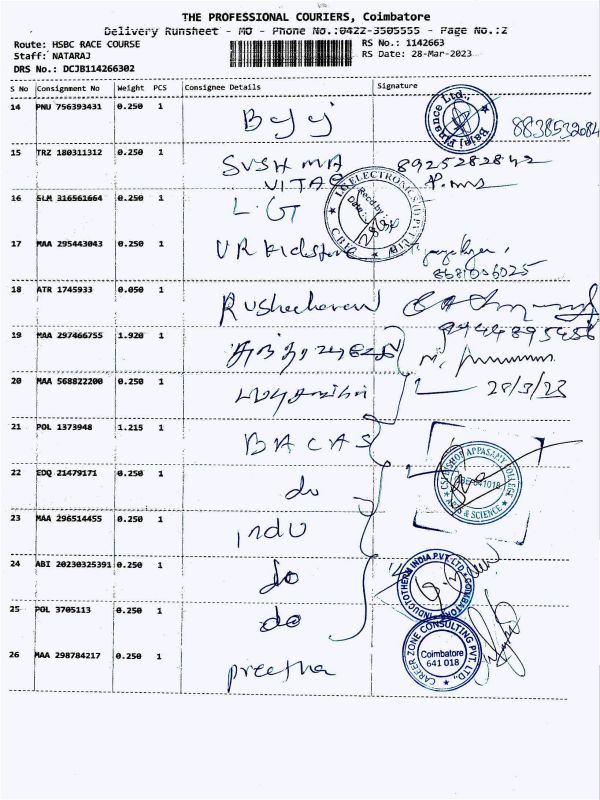 THE PROFESSIONAL COURIERS, Coimbatore
Delivery Runsheet - MO - Phone No.:0422-3505555 - Page No.:2
Route: HSBC RACE COURSE
RS No.: 1142663
Staff: NATARAJ
RS Date: 28-Mar-2023
DRS No.: DCJB114266302
S No Consignment No Weight PCS Consignee Details Signature
14 PNU 756393431 0.250 1 Bajaj Finance Ltd.,
15 TRZ 180311312 0.250 1 SUSHMA 8925282842
VITAS
16 SLM 316561664 0.250 1 L.G
LG ELECTRONICS
Recd by:
Date:
17 MAA 295443043 0.250 1 VR
18 ATR 1745933 0.050 1
19 MAA 297466755 1.920 1
20 MAA 568822200 0.250 1 28/3/23
21 POL 1373948 1.215 1 BACAS
CSI BISHOP APPASAMY COLLEGE
ARTS & SCIENCE
22 EDQ 21479171 0.250 1 do
23 MAA 296514455 0.250 1 indu
24 ABI 20230325391 0.250 1 do
INDUCTOTHERM INDIA PVT. LTD. COIMBATORE
25 POL 3705113 0.250 1 do
26 MAA 298784217 0.250 1 preetha
CAREER ZONE CONSULTING PVT. LTD.,
Coimbatore
641 018